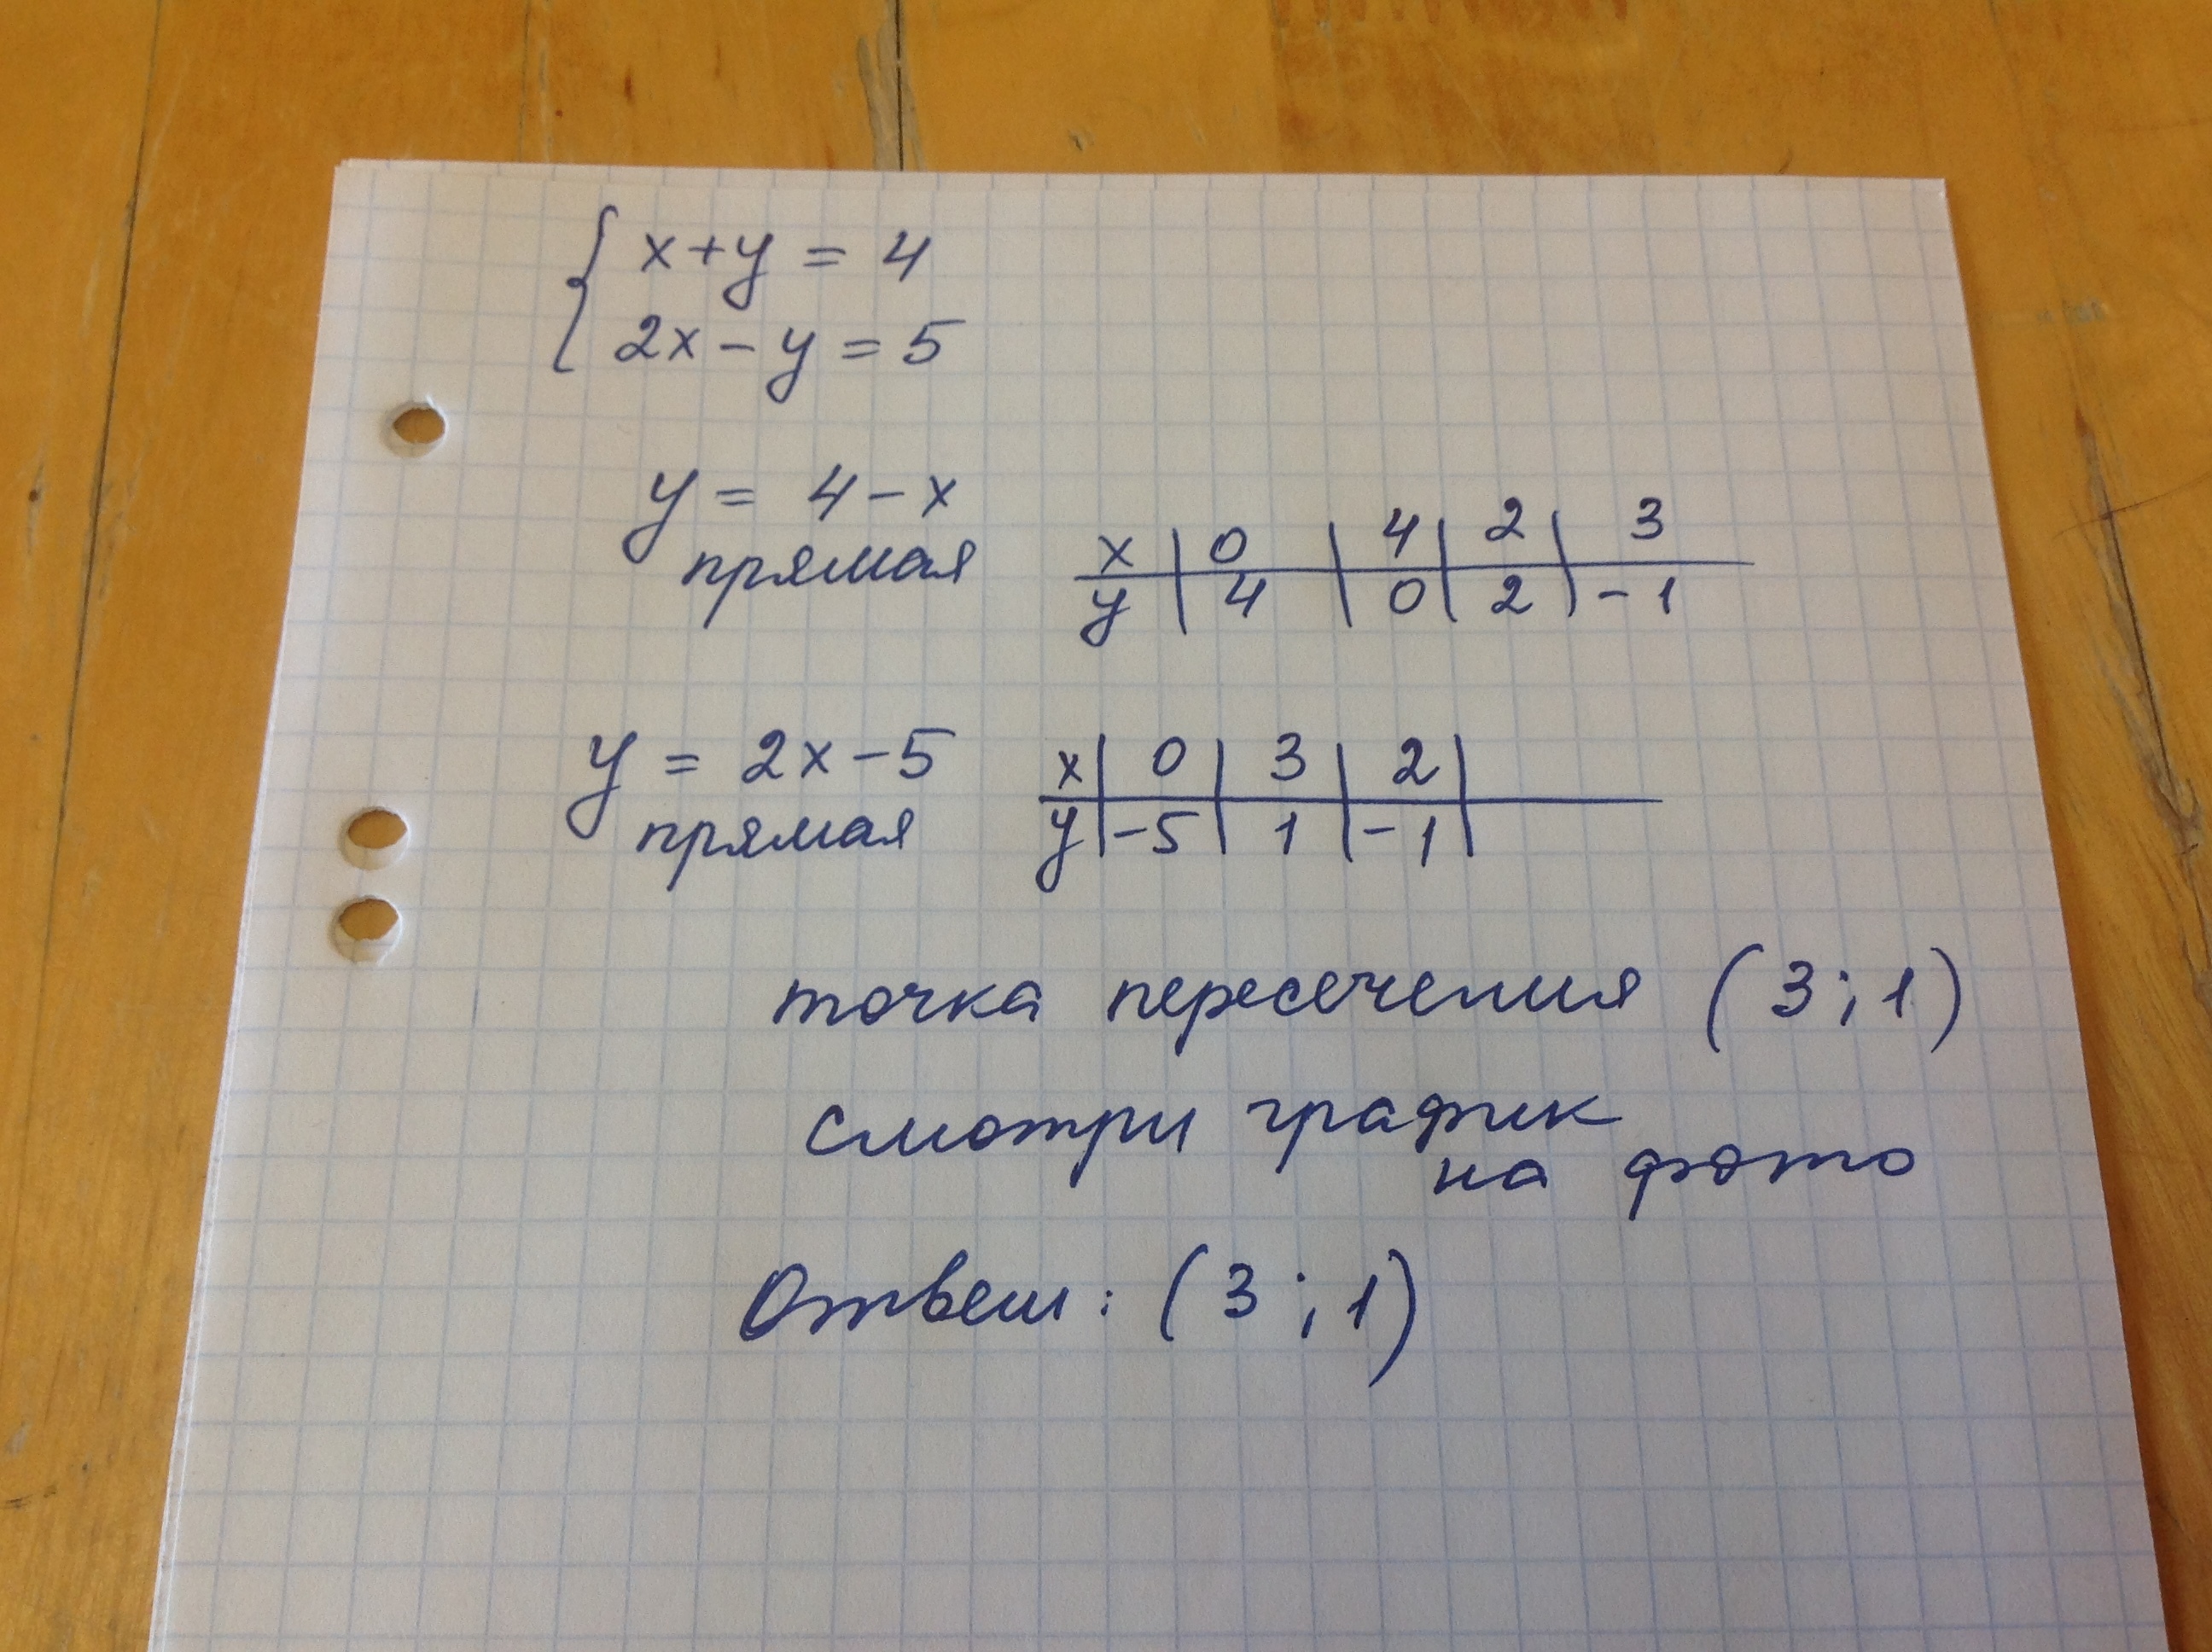 { x+y = 4
2x - y = 5
y = 4 - x
прямая
x | 0 | 4 | 2 | 3
y | 4 | 0 | 2 | -1
y = 2x - 5
прямая
x | 0 | 3 | 2 |
y | -5 | 1 | -1 |
точка пересечения (3 ; 1)
смотри график
на фото
Ответ: (3 ; 1)